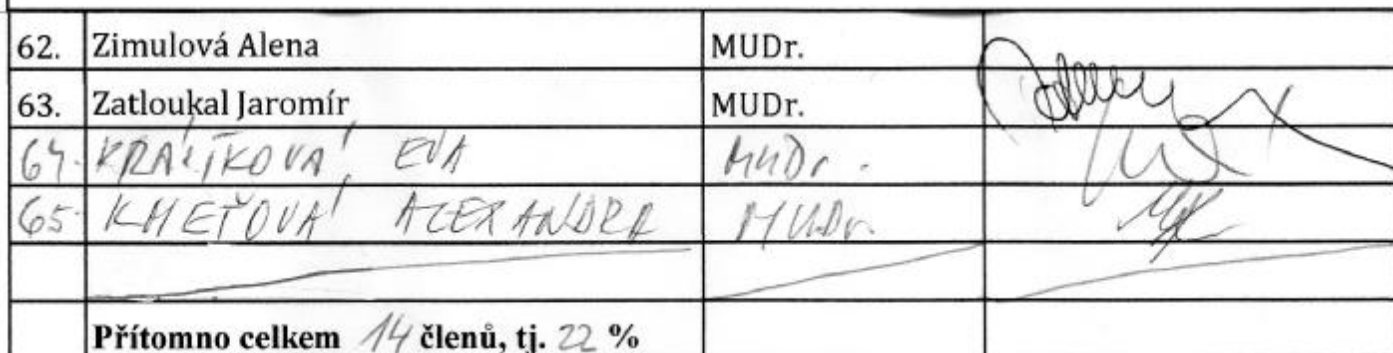 62. Zimulová Alena MUDr.
63. Zatloukal Jaromír MUDr.
64. KRÁLÍKOVÁ EVA MUDr.
65. KMEŤOVÁ ALEXANDRA MUDr.
Přítomno celkem 14 členů, tj. 22 %